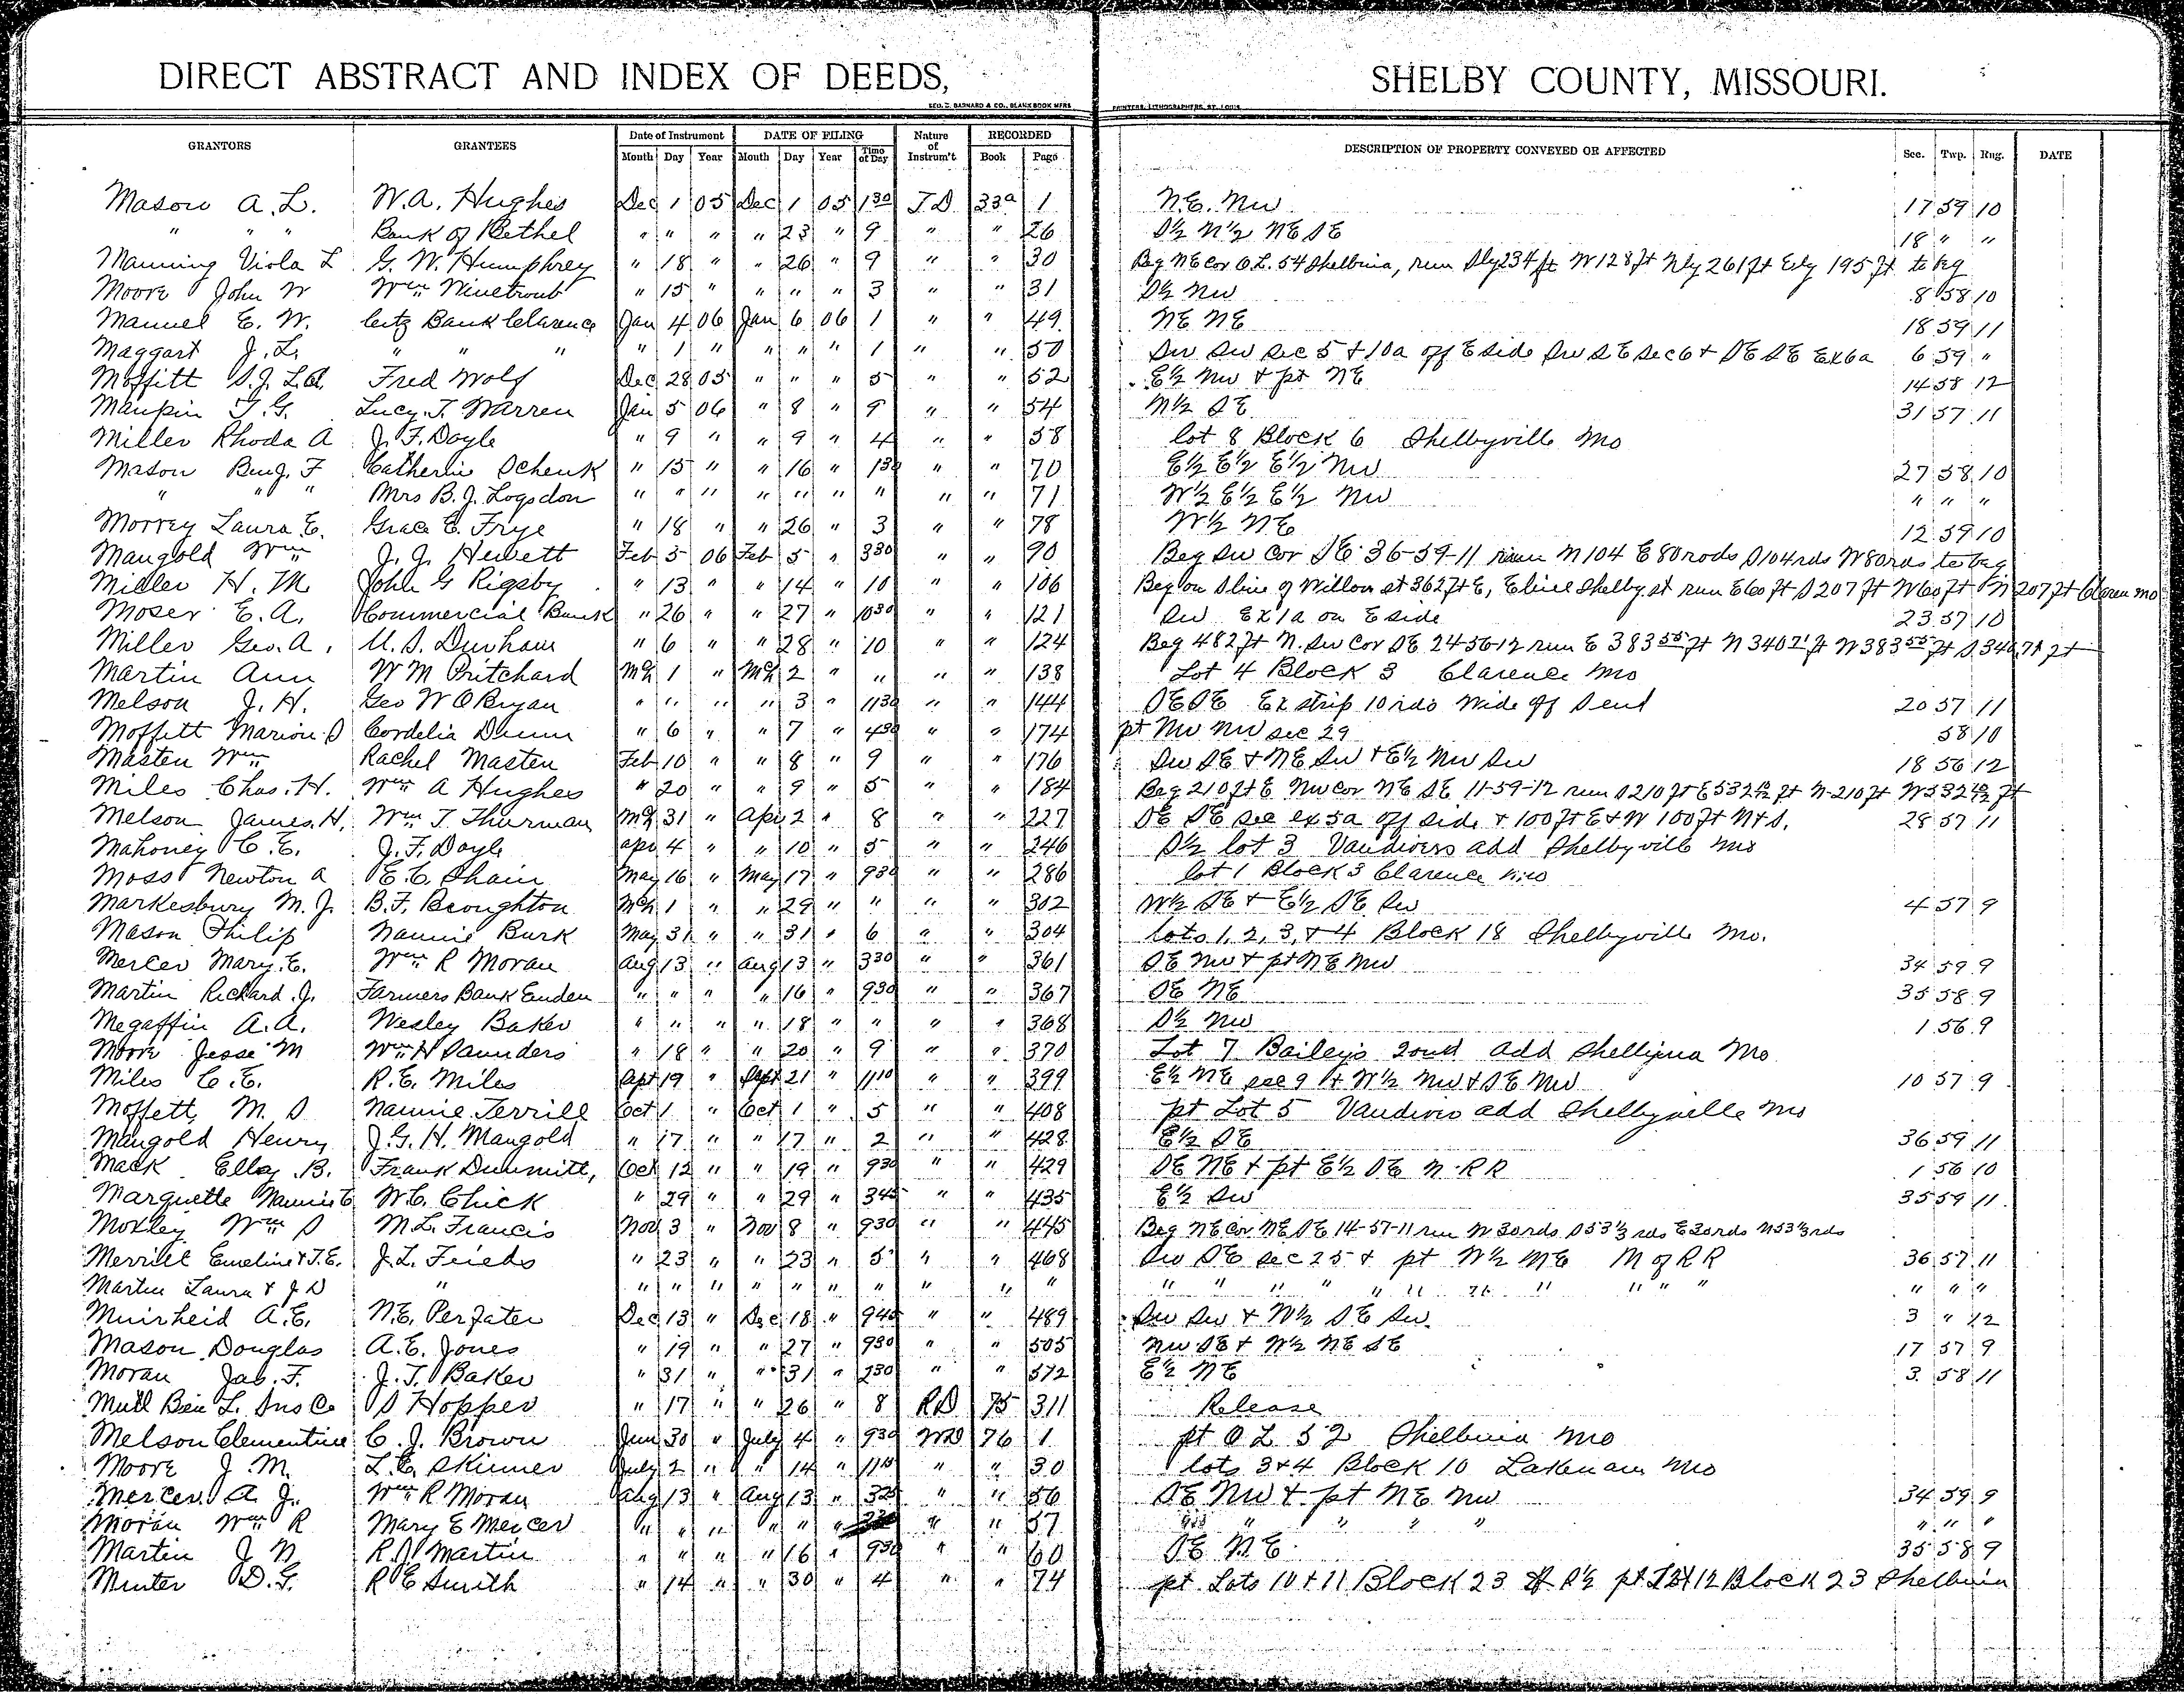 DIRECT ABSTRACT AND INDEX OF DEEDS, SHELBY COUNTY, MISSOURI.
GEO. D. BARNARD & CO., BLANK BOOK MFRS. PRINTERS, LITHOGRAPHERS, ST. LOUIS.
GRANTORS GRANTEES Date of Instrument DATE OF FILING Nature of Instrum't RECORDED DESCRIPTION OF PROPERTY CONVEYED OR AFFECTED Sec. Twp. Rng. DATE
Month Day Year Month Day Year Time of Day Book Page
Mason A. L. W. A. Hughes Dec 1 05 Dec 1 05 1 30 T D 33a 1 N.E. NW 17 59 10
" " " Bank of Bethel " " " " 23 " 9 " " 26 S½ N½ NE SE 18 " "
Manning Viola L G. W. Humphrey " 18 " " 26 " 9 " " 30 Beg NE cor O.L. 54 Shelbina, run Sly 234 ft W 128 ft Nly 261 ft Ely 195 ft to beg
Moore John W Wm Winetroub " 15 " " " " 3 " " 31 S½ NW 8 58 10
Manuel E. W. Citz Bank Clarence Jan 4 06 Jan 6 06 1 " " 49 NE NE 18 59 11
Maggart J. L. " " " " 1 " " " " 1 " " 50 SW SW Sec 5 + 10a off E side SW SE Sec 6 + SE SE Ex 6a 6 59 "
Moffitt S. J. L. A. Fred Wolf Dec 28 05 " " " 5 " " 52 E½ NW + pt NE 14 58 12
Maupin T. G. Lucy J. Warren Jan 5 06 " 8 " 9 " " 54 N½ SE 31 57 11
Miller Rhoda A J. F. Doyle " 9 " " 9 " 4 " " 58 lot 8 Block 6 Shelbyville Mo
Mason Benj. F Catherin Schenk " 15 " " 16 " 1 30 " " 70 E½ E½ E½ NW 27 58 10
" " " Mrs B. J. Logsdon " " " " " " " " " 71 W½ E½ E½ NW " " "
Morrey Laura E. Grace E. Frye " 18 " " 26 " 3 " " 78 W½ NE 12 59 10
Mangold Wm J. J. Hewett Feb 5 06 Feb 5 " 3 30 " " 90 Beg SW cor SE 36-59-11 run N 104 E 80 rods S 104 rds W 80 rds to beg
Miller H. M. John G Rigsby " 13 " " 14 " 10 " " 106 Beg on S line of Willow st 362 ft E, E line Shelby st run E 60 ft S 207 ft W 60 ft N 207 ft Claren mo
Moser E. A. Commercial Bank " 26 " " 27 " 10 30 " " 121 SW Ex 1a on E side 23 57 10
Miller Geo. A. U. S. Durham " 6 " " 28 " 10 " " 124 Beg 482 ft N. SW cor SE 24-56-12 run E 383 55 ft N 340 71 ft W 383 55 ft S 340.71 ft
Martin Ann W M Pritchard Mch 1 " Mch 2 " " " " 138 Lot 4 Block 3 Clarence Mo
Melson J. H. Geo W O Bryan " " " " 3 " 11 30 " " 144 SE SE Ex strip 10 rds Wide off S end 20 57 11
Moffett Marion S Cordelia Dunn " 6 " " 7 " 4 30 " " 174 pt NW NW sec 29 58 10
Masten Wm Rachel Masten Feb 10 " " 8 " 9 " " 176 SW SE + NE SW + E½ NW SW 18 56 12
Miles Chas. H. Wm A Hughes " 20 " " 9 " 5 " " 184 Beg 210 ft E NW cor NE SE 11-59-12 run S 210 ft E 532 ft N 210 ft W 532 ft
Melson James. H. Wm T. Thurman Mch 31 " Apr 2 " 8 " " 227 SE SE sec ex 5a off side + 100 ft E+W 100 ft N+S. 28 57 11
Mahoney C. E. J. F. Doyle Apr 4 " " 10 " 5 " " 246 S½ lot 3 Vandivers add Shelbyville Mo
Moss Newton A E. C. Shain May 16 " May 17 " 9 30 " " 286 lot 1 Block 3 Clarence Mo
Markesbury M. J. B. F. Broughton Mch 1 " " 29 " " " " 302 W½ SE + E½ SE SW 4 57 9
Mason Philip Nannie Burk May 31 " " 31 " 6 " " 304 lots 1, 2, 3, + 4 Block 18 Shelbyville Mo.
Mercer Mary. E. Wm R Moran Aug 13 " Aug 13 " 3 30 " " 361 SE NW + pt NE NW 34 59 9
Martin Richard. J. Farmers Bank Emden " " " " 16 " 9 30 " " 367 SE NE 35 58 9
Megaffin A. A. Wesley Baker " " " " 18 " " " " 368 S½ NW 1 56 9
Moore Jesse M Wm H Saunders " 18 " " 20 " 9 " " 370 Lot 7 Bailey's 2ond add Shelbina Mo
Miles C. E. R. E. Miles Sept 19 " Sept 21 " 11 10 " " 399 E½ NE sec 9 + W½ NW + SE NW 10 57 9
Moffett, M. S Nannie Terrill Oct 1 " Oct 1 " 5 " " 408 pt Lot 5 Vandiver add Shelbyville Mo
Mangold Henry J. G. H. Mangold " 17 " " 17 " 2 " " 428 E½ SE 36 59 11
Mack Ellay B. Frank Dimmitt, Oct 12 " " 19 " 9 30 " " 429 SE NE + pt E½ SE N. RR 1 56 10
Marquette Nannie E W. C. Chick " 29 " " 29 " 3 45 " " 435 E½ SW 35 59 11
Moxley Wm S M. L. Francis Nov 3 " Nov 8 " 9 30 " " 445 Beg NE Cor NE SE 14-57-11 run W 30 rds S 53 ⅓ rds E 30 rds N 53 ⅓ rds
Merrill Emeline + T. E. J. L. Frieds " 23 " " 23 " 5 " " 468 SW SE sec 25 + pt W½ NE N of RR 36 57 11
Martin Laura + J D " " " " " " " " " " " " " " " " " " " " " " " "
Muirheid A. E. N. E. Perfater Dec 13 " Dec 18 " 9 40 " " 489 SW SW + W½ SE SW. 3 " 12
Mason Douglas A. E. Jones " 19 " " 27 " 9 30 " " 505 NW SE + W½ NE SE 17 57 9
Moran Jas. F. J. T. Baker " 31 " " 31 " 2 30 " " 572 E½ NE 3 58 11
Mutl Ben L. Ins Co S Hopper " 17 " " 26 " 8 RD 75 311 Release
Melson Clementine C. J. Brown Jun 30 " July 4 " 9 30 WD 76 1 pt O L 52 Shelbina Mo
Moore J. M. L. E. Skinner July 2 " " 14 " 11 " " 30 lots 3 + 4 Block 10 Lakenan Mo
Mercer. A J. Wm R Moran Aug 13 " Aug 13 " 3 25 " " 56 SE NW + pt NE NW 34 59 9
Moran Wm R Mary E Mercer " " " " " " " " 57 " " " " " " " "
Martin J N R. J. Martin " " " " 16 " 9 30 " " 60 SE N.E. 35 58 9
Minter D. G. R E Smith " 14 " " 30 " 4 " " 74 pt Lots 10 + 11 Block 23 S½ pt Lot 12 Block 23 Shelbina